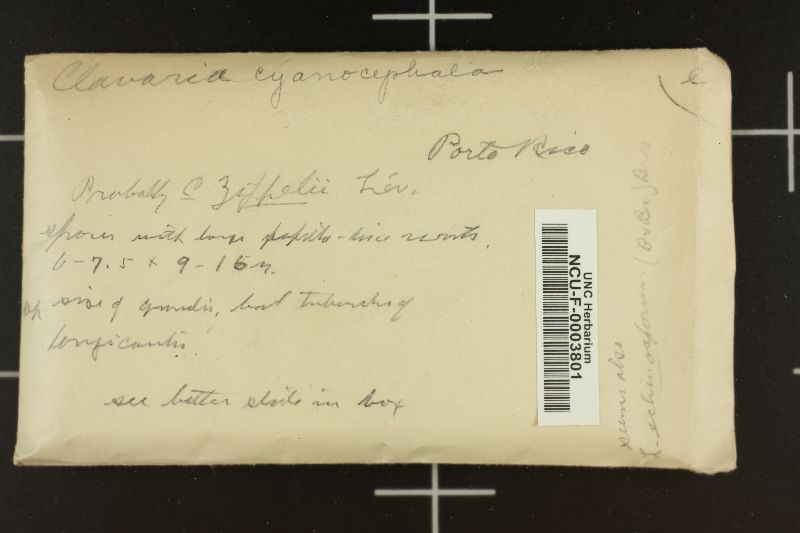 Clavaria cyanocephala
C
Porto Rico
Probably C Zippelii Lév.
spores with large papilla-like warts,
6-7.5 x 9-15 μ.
size of grandis, but tubercles of
longicaulis.
see better slide in box
UNC Herbarium
NCU-F-0003801
seems also
L. echinosporum (B & Br)